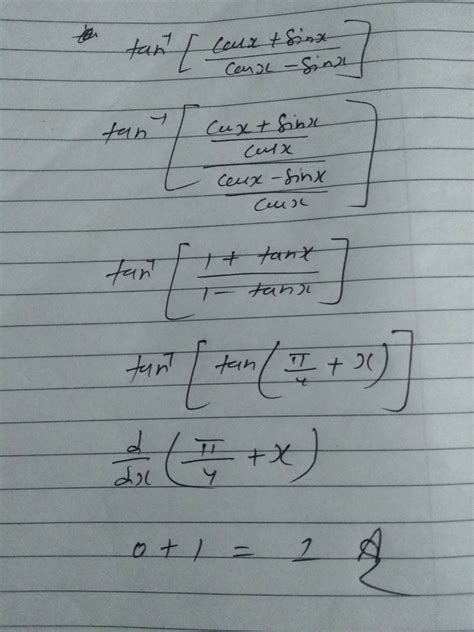 tan⁻¹ [ (cosx + sinx) / (cosx - sinx) ]
tan⁻¹ [ ((cosx + sinx) / cosx) / ((cosx - sinx) / cosx) ]
tan⁻¹ [ (1 + tanx) / (1 - tanx) ]
tan⁻¹ [ tan ( π/4 + x ) ]
d/dx ( π/4 + x )
0 + 1 = 1